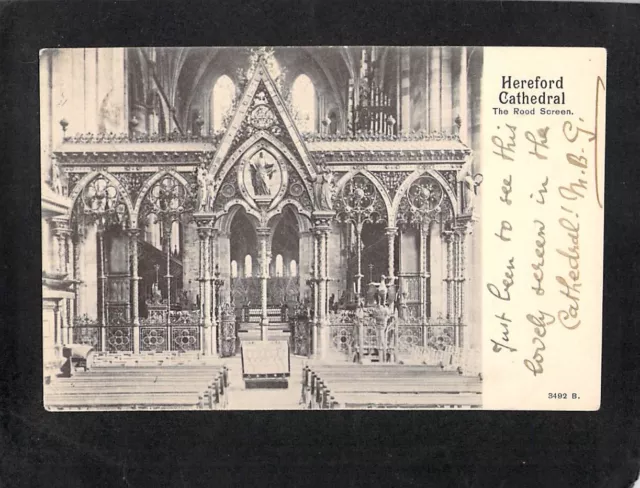 Hereford
Cathedral
The Rood Screen.
Just been to see this
lovely screen in the
Cathedral! M.B-G.
3492 B.